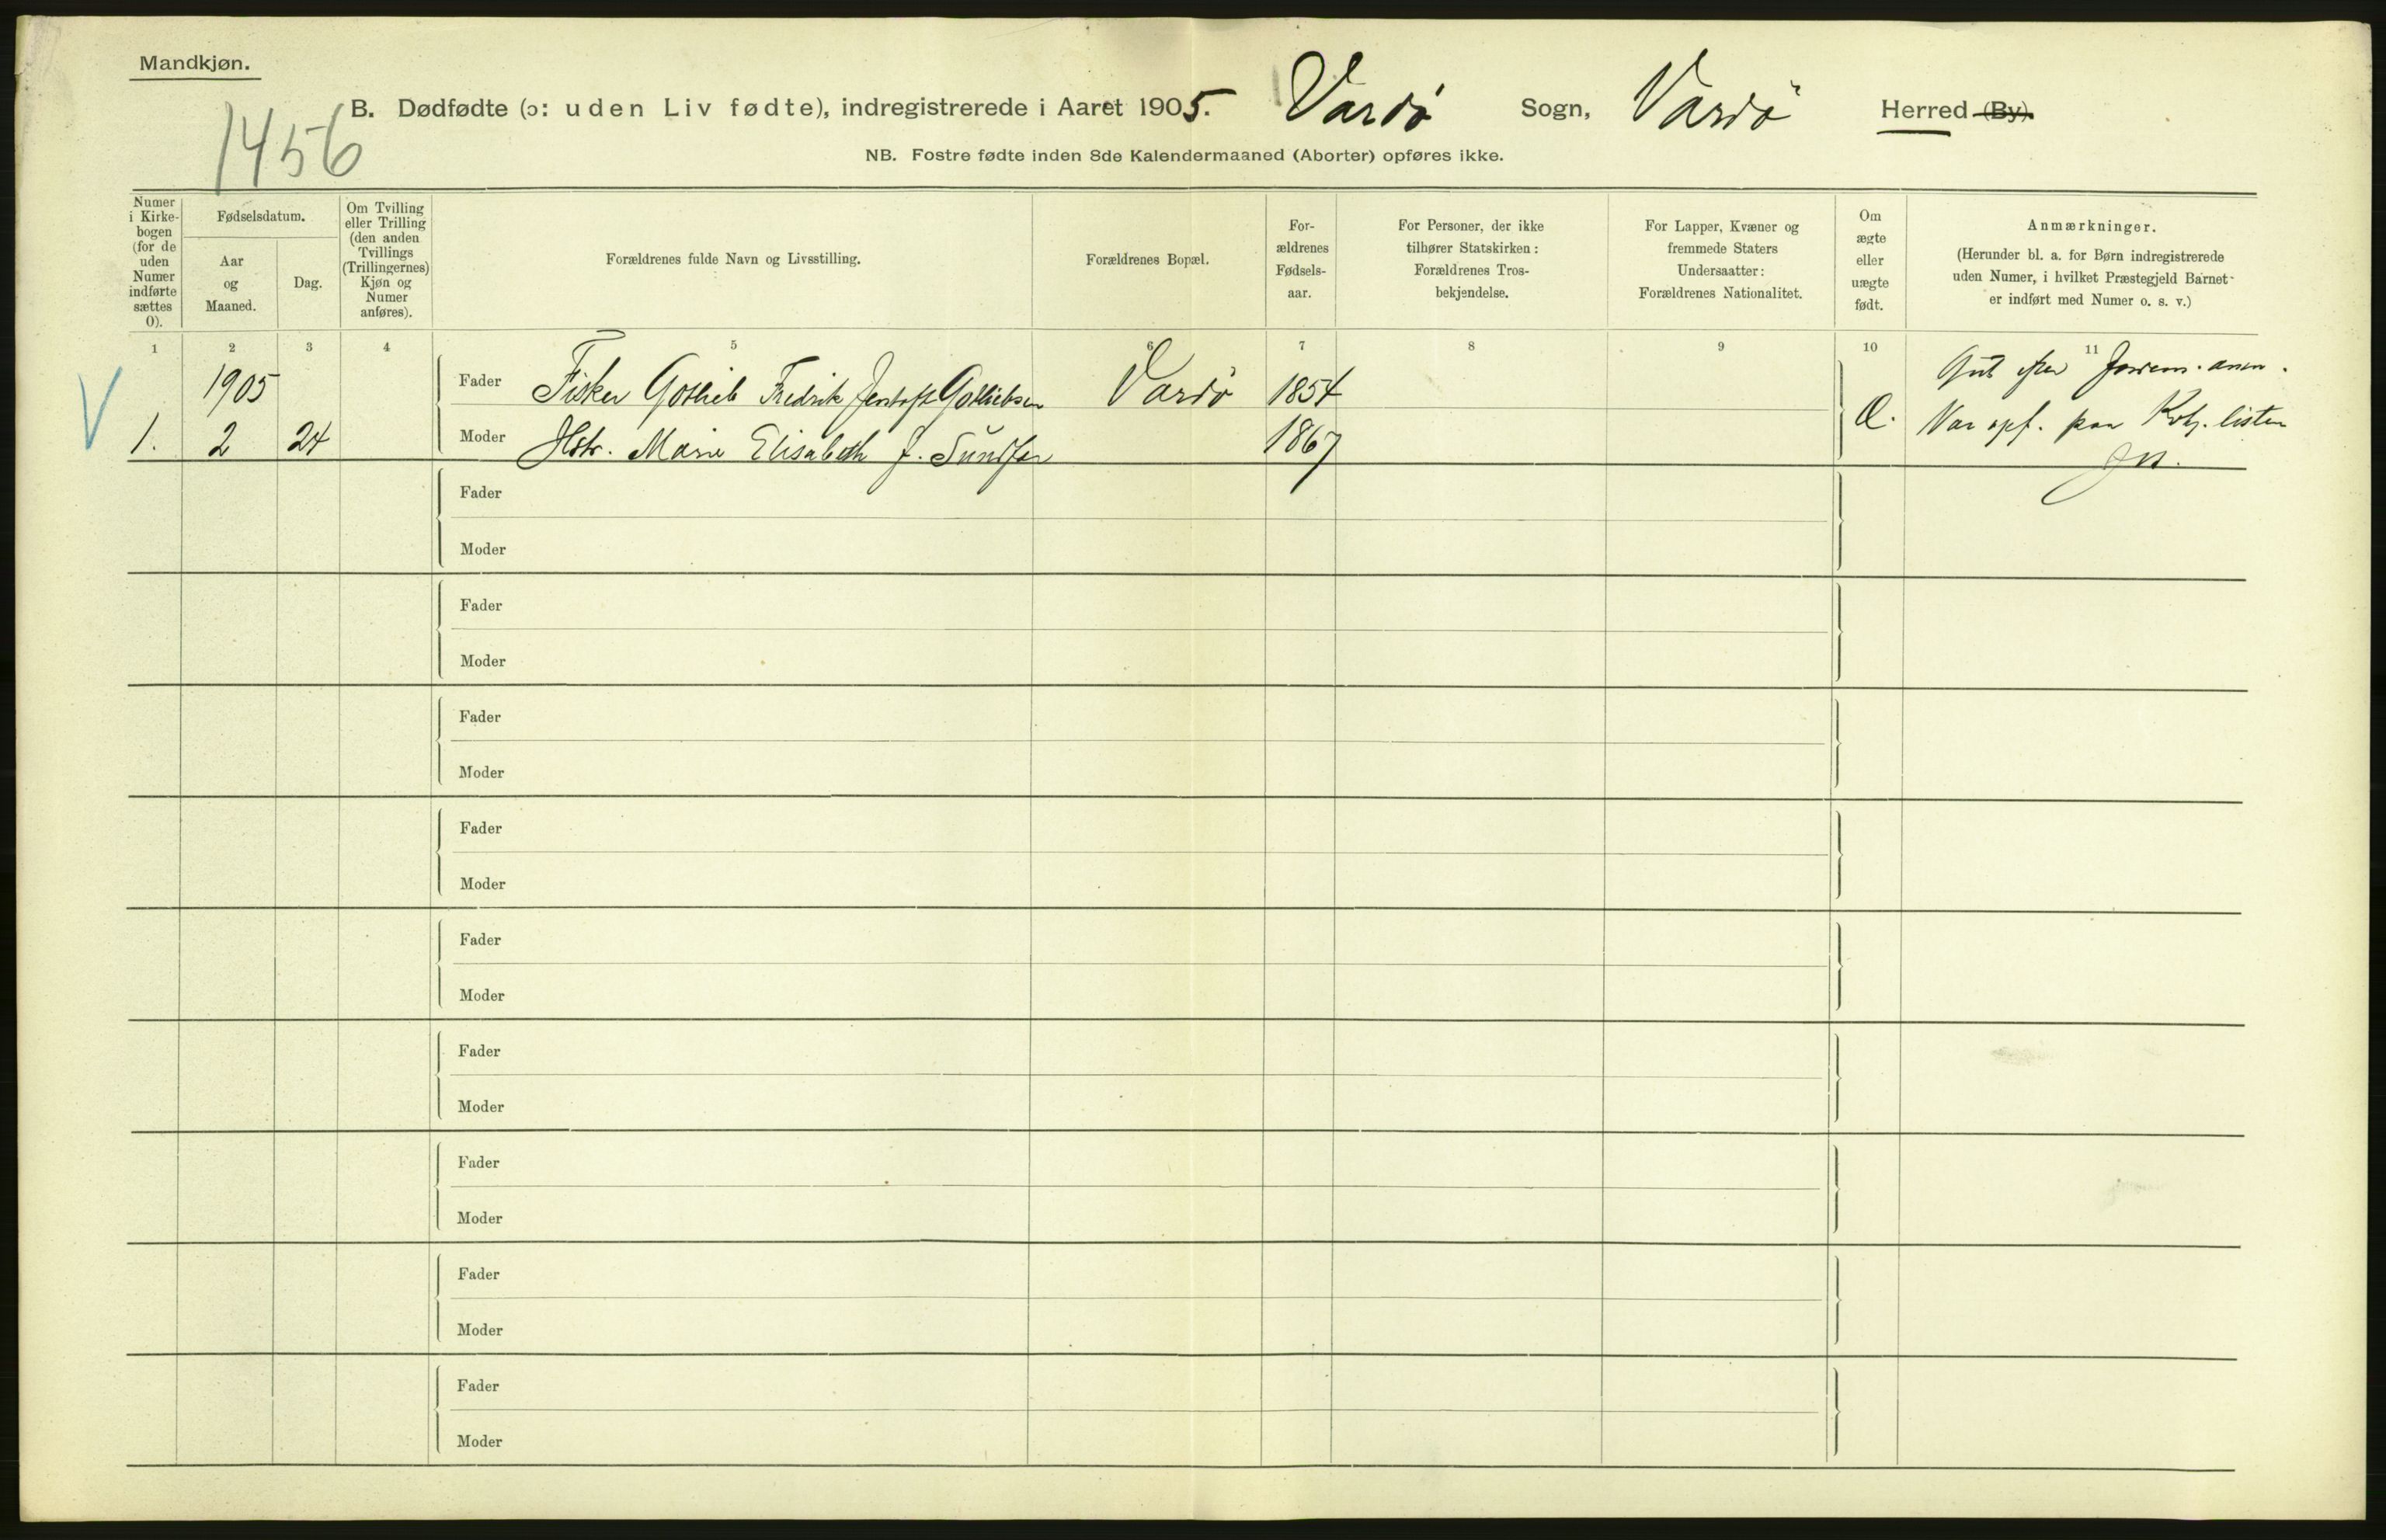 Mandkjøn.
1456
B. Dødfødte (ɔ: uden Liv fødte), indregistrerede i Aaret 1905. Vardö Sogn, Vardö Herred (By).
NB. Fostre fødte inden 8de Kalendermaaned (Aborter) opføres ikke.
Numer i Kirkebogen (for de uden Numer indførte sættes 0).
Fødselsdatum.
Aar og Maaned.
Dag.
Om Tvilling eller Trilling (den anden Tvillings (Trillingernes) Kjøn og Numer anføres).
Forældrenes fulde Navn og Livsstilling.
Forældrenes Bopæl.
For-
ældrenes
Fødsels-
aar.
For Personer, der ikke
tilhører Statskirken:
Forældrenes Tros-
bekjendelse.
For Lapper, Kvæner og
fremmede Staters
Undersaatter:
Forældrenes Nationalitet.
Om
ægte
eller
uægte
født.
Anmærkninger.
(Herunder bl. a. for Børn indregistrerede
uden Numer, i hvilket Præstegjeld Barnet
er indført med Numer o. s. v.)
1 2 3 4 5 6 7 8 9 10 11
V
1905
Fader Fisker Gotlieb Fredrik Gotliebsen Vardö 1854
1. 2 24
Moder Hstr. Marie Elisabeth J. 1867
Var opf. paa listen
Fader
Moder
Fader
Moder
Fader
Moder
Fader
Moder
Fader
Moder
Fader
Moder
Fader
Moder
Fader
Moder
Fader
Moder